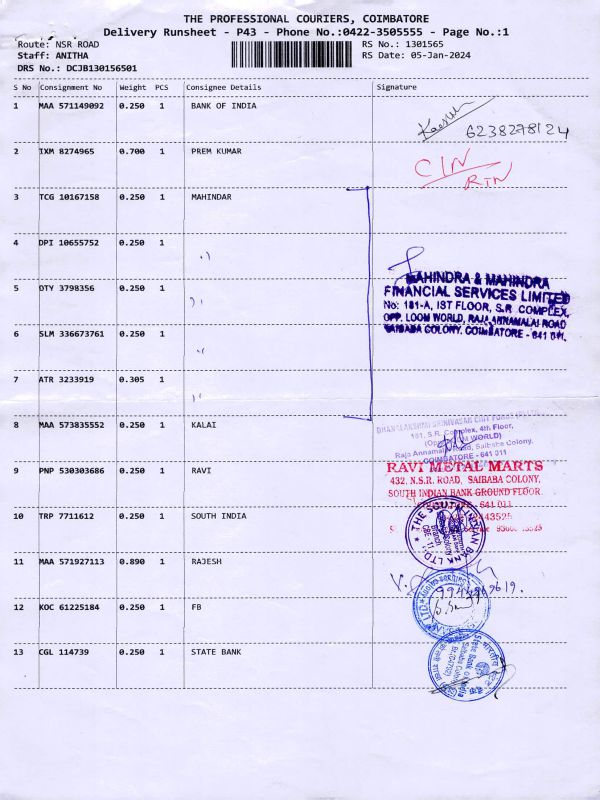 THE PROFESSIONAL COURIERS, COIMBATORE
Delivery Runsheet - P43 - Phone No.:0422-3505555 - Page No.:1
Route: NSR ROAD RS No.: 1301565
Staff: ANITHA RS Date: 05-Jan-2024
DRS No.: DCJB130156501
S No Consignment No Weight PCS Consignee Details Signature
1 MAA 571149092 0.250 1 BANK OF INDIA
6238278124
2 IXM 8274965 0.700 1 PREM KUMAR
CIN
RTN
3 TCG 10167158 0.250 1 MAHINDAR
4 DPI 10655752 0.250 1
MAHINDRA & MAHINDRA
5 DTY 3798356 0.250 1
FINANCIAL SERVICES LIMITED
No: 181-A, IST FLOOR, S.R. COMPLEX,
OPP. LOOM WORLD, RAJA ANNAMALAI ROAD
SAIBABA COLONY. COIMBATORE - 641 011.
6 SLM 336673761 0.250 1
7 ATR 3233919 0.305 1
8 MAA 573835552 0.250 1 KALAI
181, S.R. Complex, 4th Floor,
(Opp. LOOM WORLD)
Raja Annamalai Road, Saibaba Colony,
COIMBATORE - 641 011
9 PNP 530303686 0.250 1 RAVI
RAVI METAL MARTS
432, N.S.R. ROAD, SAIBABA COLONY,
SOUTH INDIAN BANK GROUND FLOOR
- 641 011
10 TRP 7711612 0.250 1 SOUTH INDIA
THE SOUTH INDIAN BANK LTD.
11 MAA 571927113 0.890 1 RAJESH
12 KOC 61225184 0.250 1 FB
13 CGL 114739 0.250 1 STATE BANK
State Bank of India